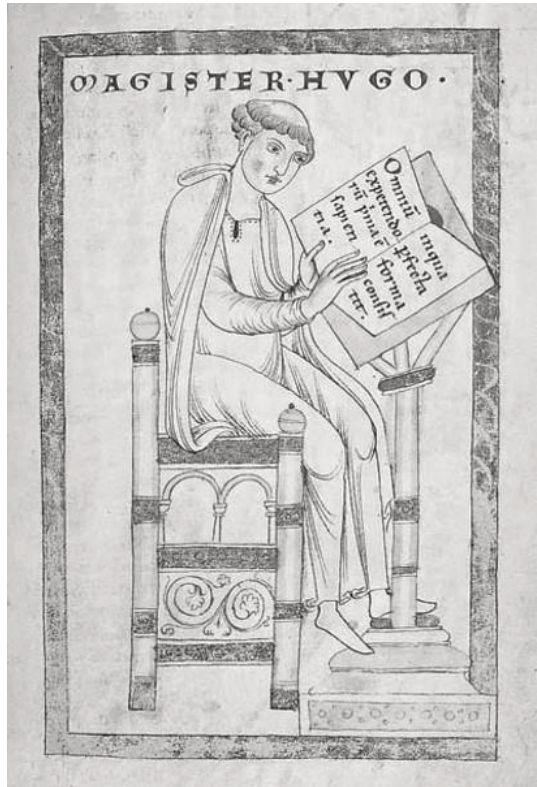 MAGISTER·HVGO·
Omniũ
expetendo
rũ p̾ma ẽ
sapien
tia.
inqua
ꝑfecta
forma
consis
tit.